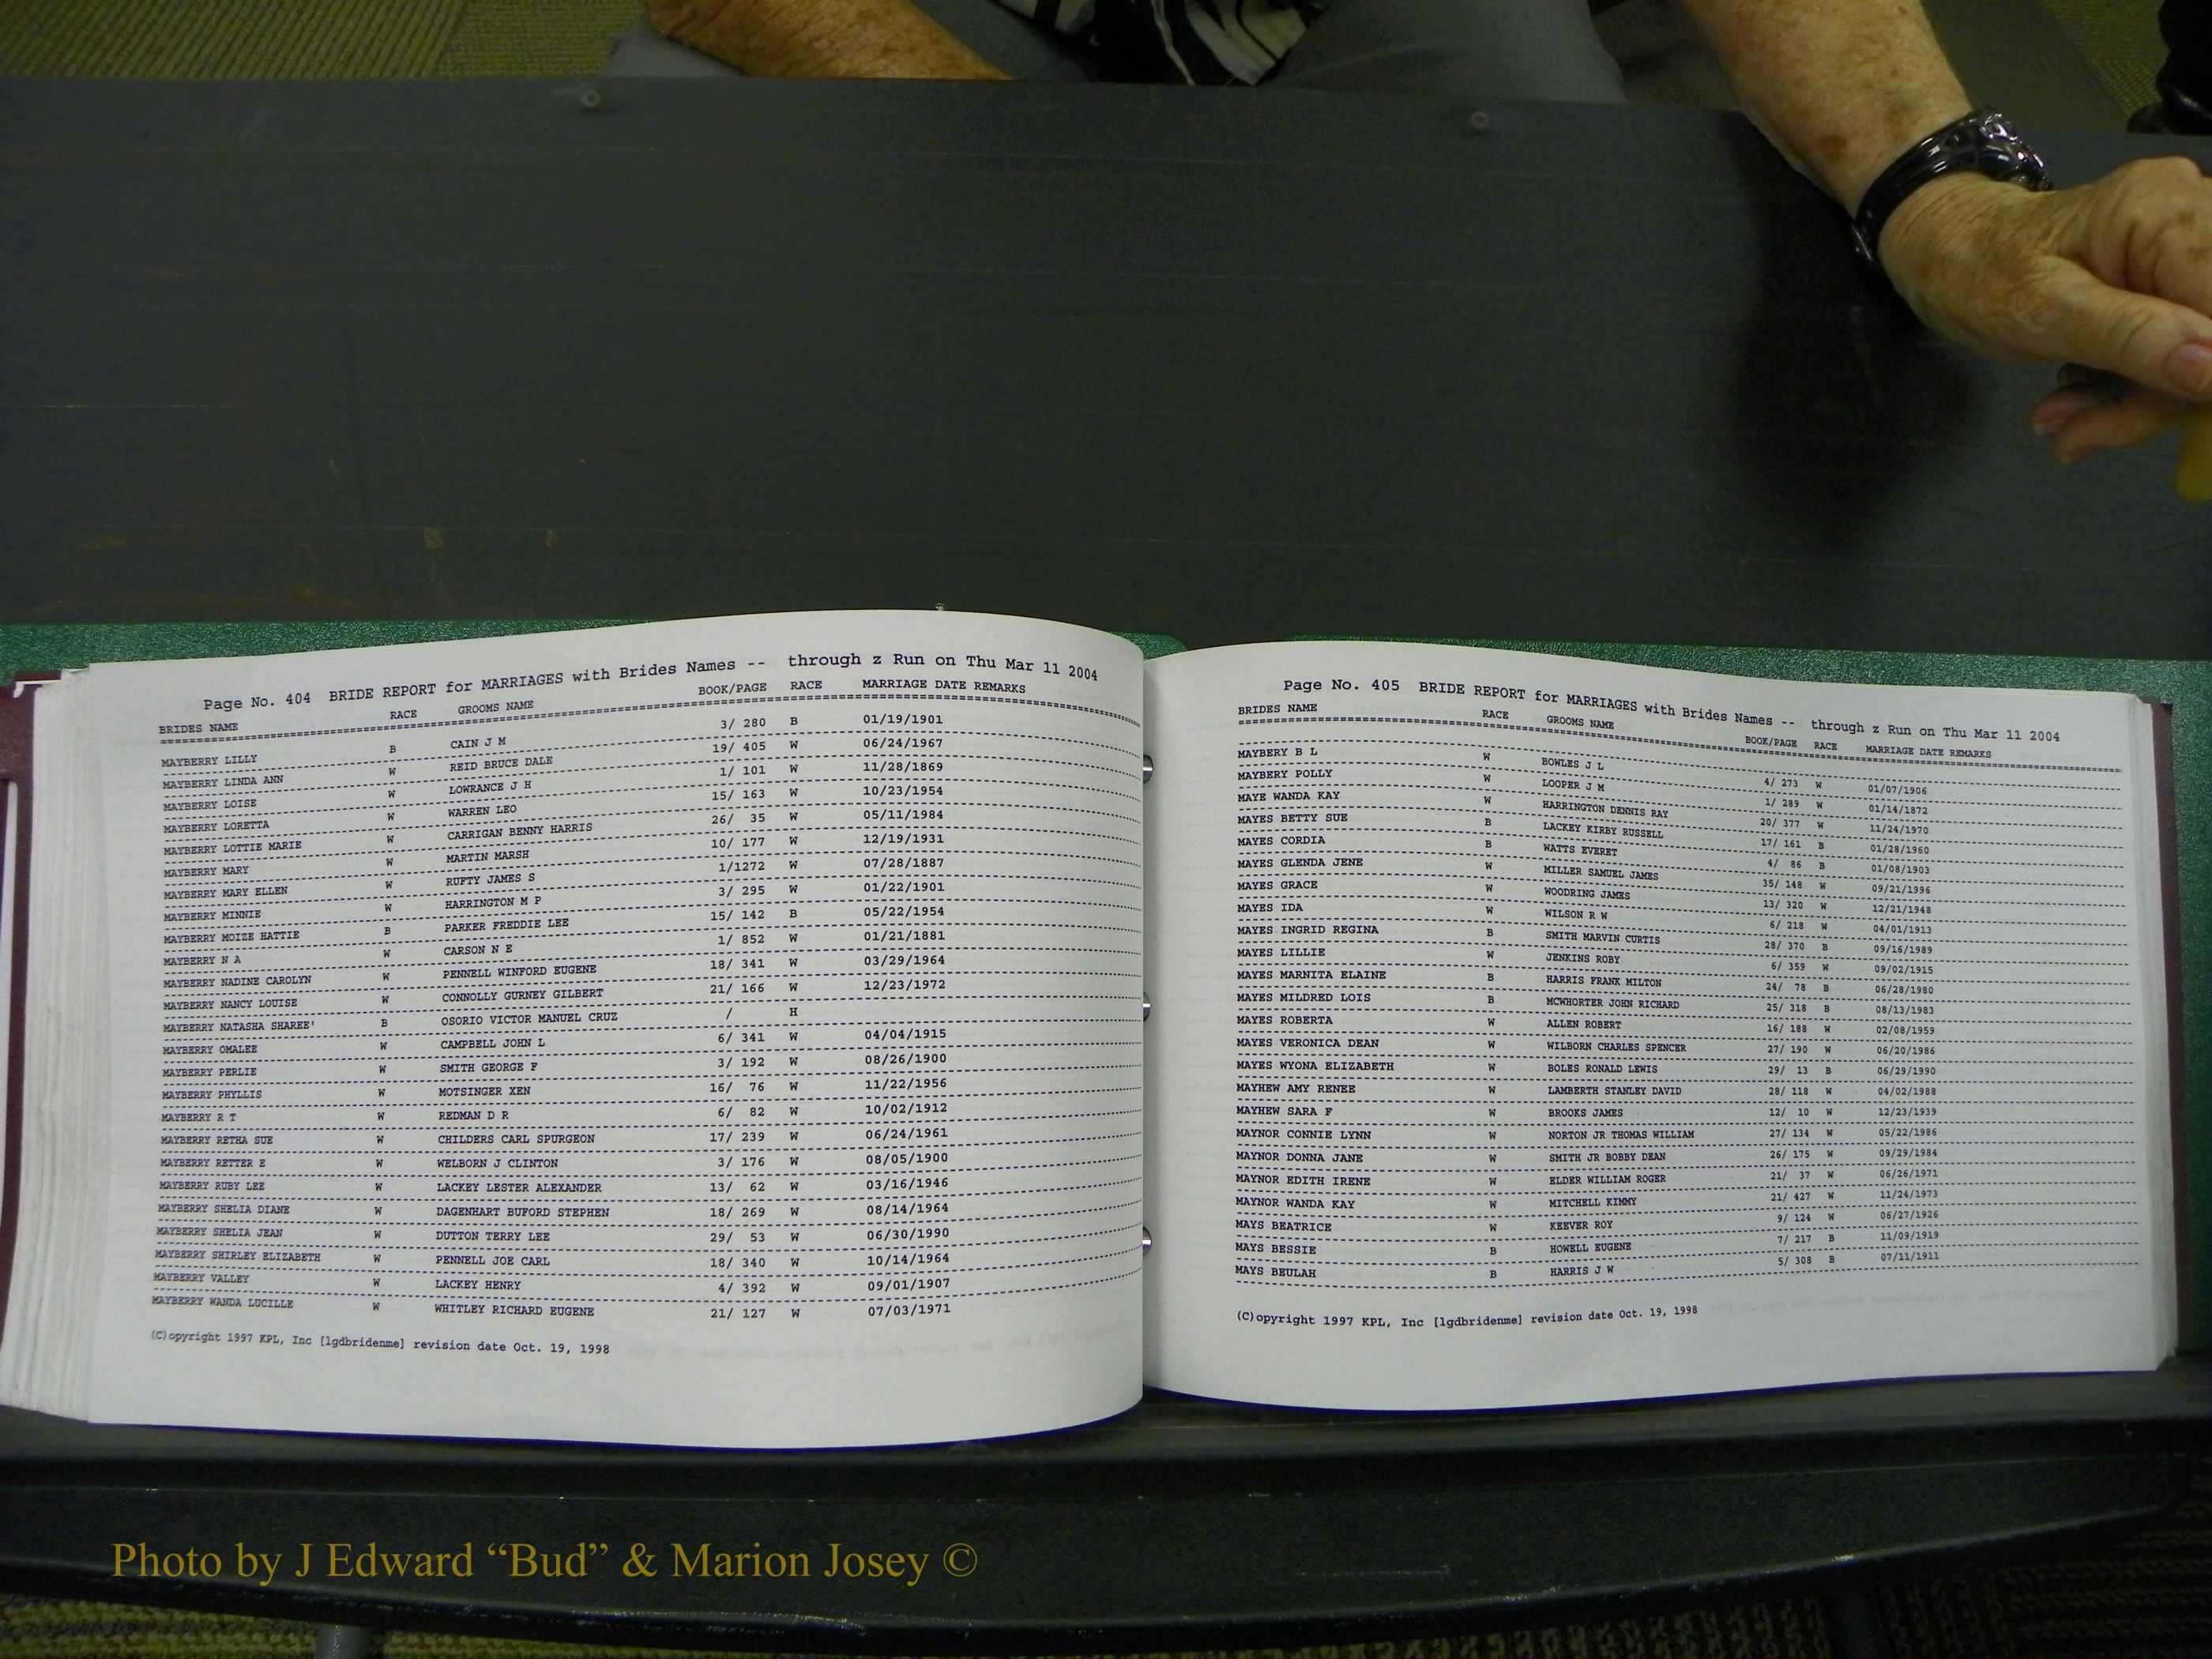 Page No. 404 BRIDE REPORT for MARRIAGES with Brides Names -- through z Run on Thu Mar 11 2004
BRIDES NAME RACE GROOMS NAME BOOK/PAGE RACE MARRIAGE DATE REMARKS
MAYBERRY LILLY B CAIN J M 3/ 280 B 01/19/1901
MAYBERRY LINDA ANN W REID BRUCE DALE 19/ 405 W 06/24/1967
MAYBERRY LOISE W LOWRANCE J H 1/ 101 W 11/28/1869
MAYBERRY LORETTA W WARREN LEO 15/ 163 W 10/23/1954
MAYBERRY LOTTIE MARIE W CARRIGAN BENNY HARRIS 26/ 35 W 05/11/1984
MAYBERRY MARY W MARTIN MARSH 10/ 177 W 12/19/1931
MAYBERRY MARY ELLEN W RUFTY JAMES S 1/1272 W 07/28/1887
MAYBERRY MINNIE W HARRINGTON M P 3/ 295 W 01/22/1901
MAYBERRY MOIZE HATTIE B PARKER FREDDIE LEE 15/ 142 B 05/22/1954
MAYBERRY N A W CARSON N E 1/ 852 W 01/21/1881
MAYBERRY NADINE CAROLYN W PENNELL WINFORD EUGENE 18/ 341 W 03/29/1964
MAYBERRY NANCY LOUISE W CONNOLLY GURNEY GILBERT 21/ 166 W 12/23/1972
MAYBERRY NATASHA SHAREE' B OSORIO VICTOR MANUEL CRUZ / H
MAYBERRY OMALEE W CAMPBELL JOHN L 6/ 341 W 04/04/1915
MAYBERRY PERLIE W SMITH GEORGE F 3/ 192 W 08/26/1900
MAYBERRY PHYLLIS W MOTSINGER XEN 16/ 76 W 11/22/1956
MAYBERRY R T W REDMAN D R 6/ 82 W 10/02/1912
MAYBERRY RETHA SUE W CHILDERS CARL SPURGEON 17/ 239 W 06/24/1961
MAYBERRY RETTER E W WELBORN J CLINTON 3/ 176 W 08/05/1900
MAYBERRY RUBY LEE W LACKEY LESTER ALEXANDER 13/ 62 W 03/16/1946
MAYBERRY SHELIA DIANE W DAGENHART BUFORD STEPHEN 18/ 269 W 08/14/1964
MAYBERRY SHELIA JEAN W DUTTON TERRY LEE 29/ 53 W 06/30/1990
MAYBERRY SHIRLEY ELIZABETH W PENNELL JOE CARL 18/ 340 W 10/14/1964
MAYBERRY VALLEY W LACKEY HENRY 4/ 392 W 09/01/1907
MAYBERRY WANDA LUCILLE W WHITLEY RICHARD EUGENE 21/ 127 W 07/03/1971
(C)opyright 1997 KPL, Inc [lgdbridenme] revision date Oct. 19, 1998
Page No. 405 BRIDE REPORT for MARRIAGES with Brides Names -- through z Run on Thu Mar 11 2004
BRIDES NAME RACE GROOMS NAME BOOK/PAGE RACE MARRIAGE DATE REMARKS
MAYBERY B L W BOWLES J L 4/ 273 W 01/07/1906
MAYBERY POLLY W LOOPER J M 1/ 289 W 01/14/1872
MAYE WANDA KAY W HARRINGTON DENNIS RAY 20/ 377 W 11/24/1970
MAYES BETTY SUE B LACKEY KIRBY RUSSELL 17/ 161 B 01/28/1960
MAYES CORDIA B WATTS EVERET 4/ 86 B 01/08/1903
MAYES GLENDA JENE W MILLER SAMUEL JAMES 35/ 148 W 09/21/1996
MAYES GRACE W WOODRING JAMES 13/ 320 W 12/21/1948
MAYES IDA W WILSON R W 6/ 218 W 04/01/1913
MAYES INGRID REGINA B SMITH MARVIN CURTIS 28/ 370 B 09/16/1989
MAYES LILLIE W JENKINS ROBY 6/ 359 W 09/02/1915
MAYES MARNITA ELAINE B HARRIS FRANK MILTON 24/ 78 B 06/28/1980
MAYES MILDRED LOIS B MCWHORTER JOHN RICHARD 25/ 318 B 08/13/1983
MAYES ROBERTA W ALLEN ROBERT 16/ 188 W 02/08/1959
MAYES VERONICA DEAN W WILBORN CHARLES SPENCER 27/ 190 W 06/20/1986
MAYES WYONA ELIZABETH W BOLES RONALD LEWIS 29/ 13 B 06/29/1990
MAYHEW AMY RENEE W LAMBERTH STANLEY DAVID 28/ 118 W 04/02/1988
MAYHEW SARA F W BROOKS JAMES 12/ 10 W 12/23/1939
MAYNOR CONNIE LYNN W NORTON JR THOMAS WILLIAM 27/ 134 W 05/22/1986
MAYNOR DONNA JANE W SMITH JR BOBBY DEAN 26/ 175 W 09/29/1984
MAYNOR EDITH IRENE W ELDER WILLIAM ROGER 21/ 37 W 06/26/1971
MAYNOR WANDA KAY W MITCHELL KIMMY 21/ 427 W 11/24/1973
MAYS BEATRICE W KEEVER ROY 9/ 124 W 06/27/1926
MAYS BESSIE B HOWELL EUGENE 7/ 217 B 11/09/1919
MAYS BEULAH B HARRIS J W 5/ 308 B 07/11/1911
(C)opyright 1997 KPL, Inc [lgdbridenme] revision date Oct. 19, 1998
Photo by J Edward “Bud” & Marion Josey ©